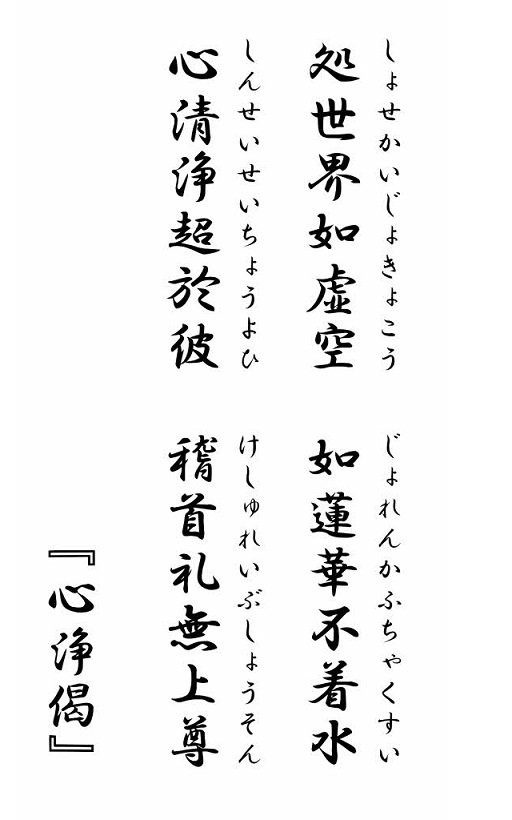 しょせかいじょきょこう
処世界如虚空
じょれんかふちゃくすい
如蓮華不着水
しんせいせいちょうよひ
心清浄超於彼
けしゅれいぶしょうそん
稽首礼無上尊
『心浄偈』